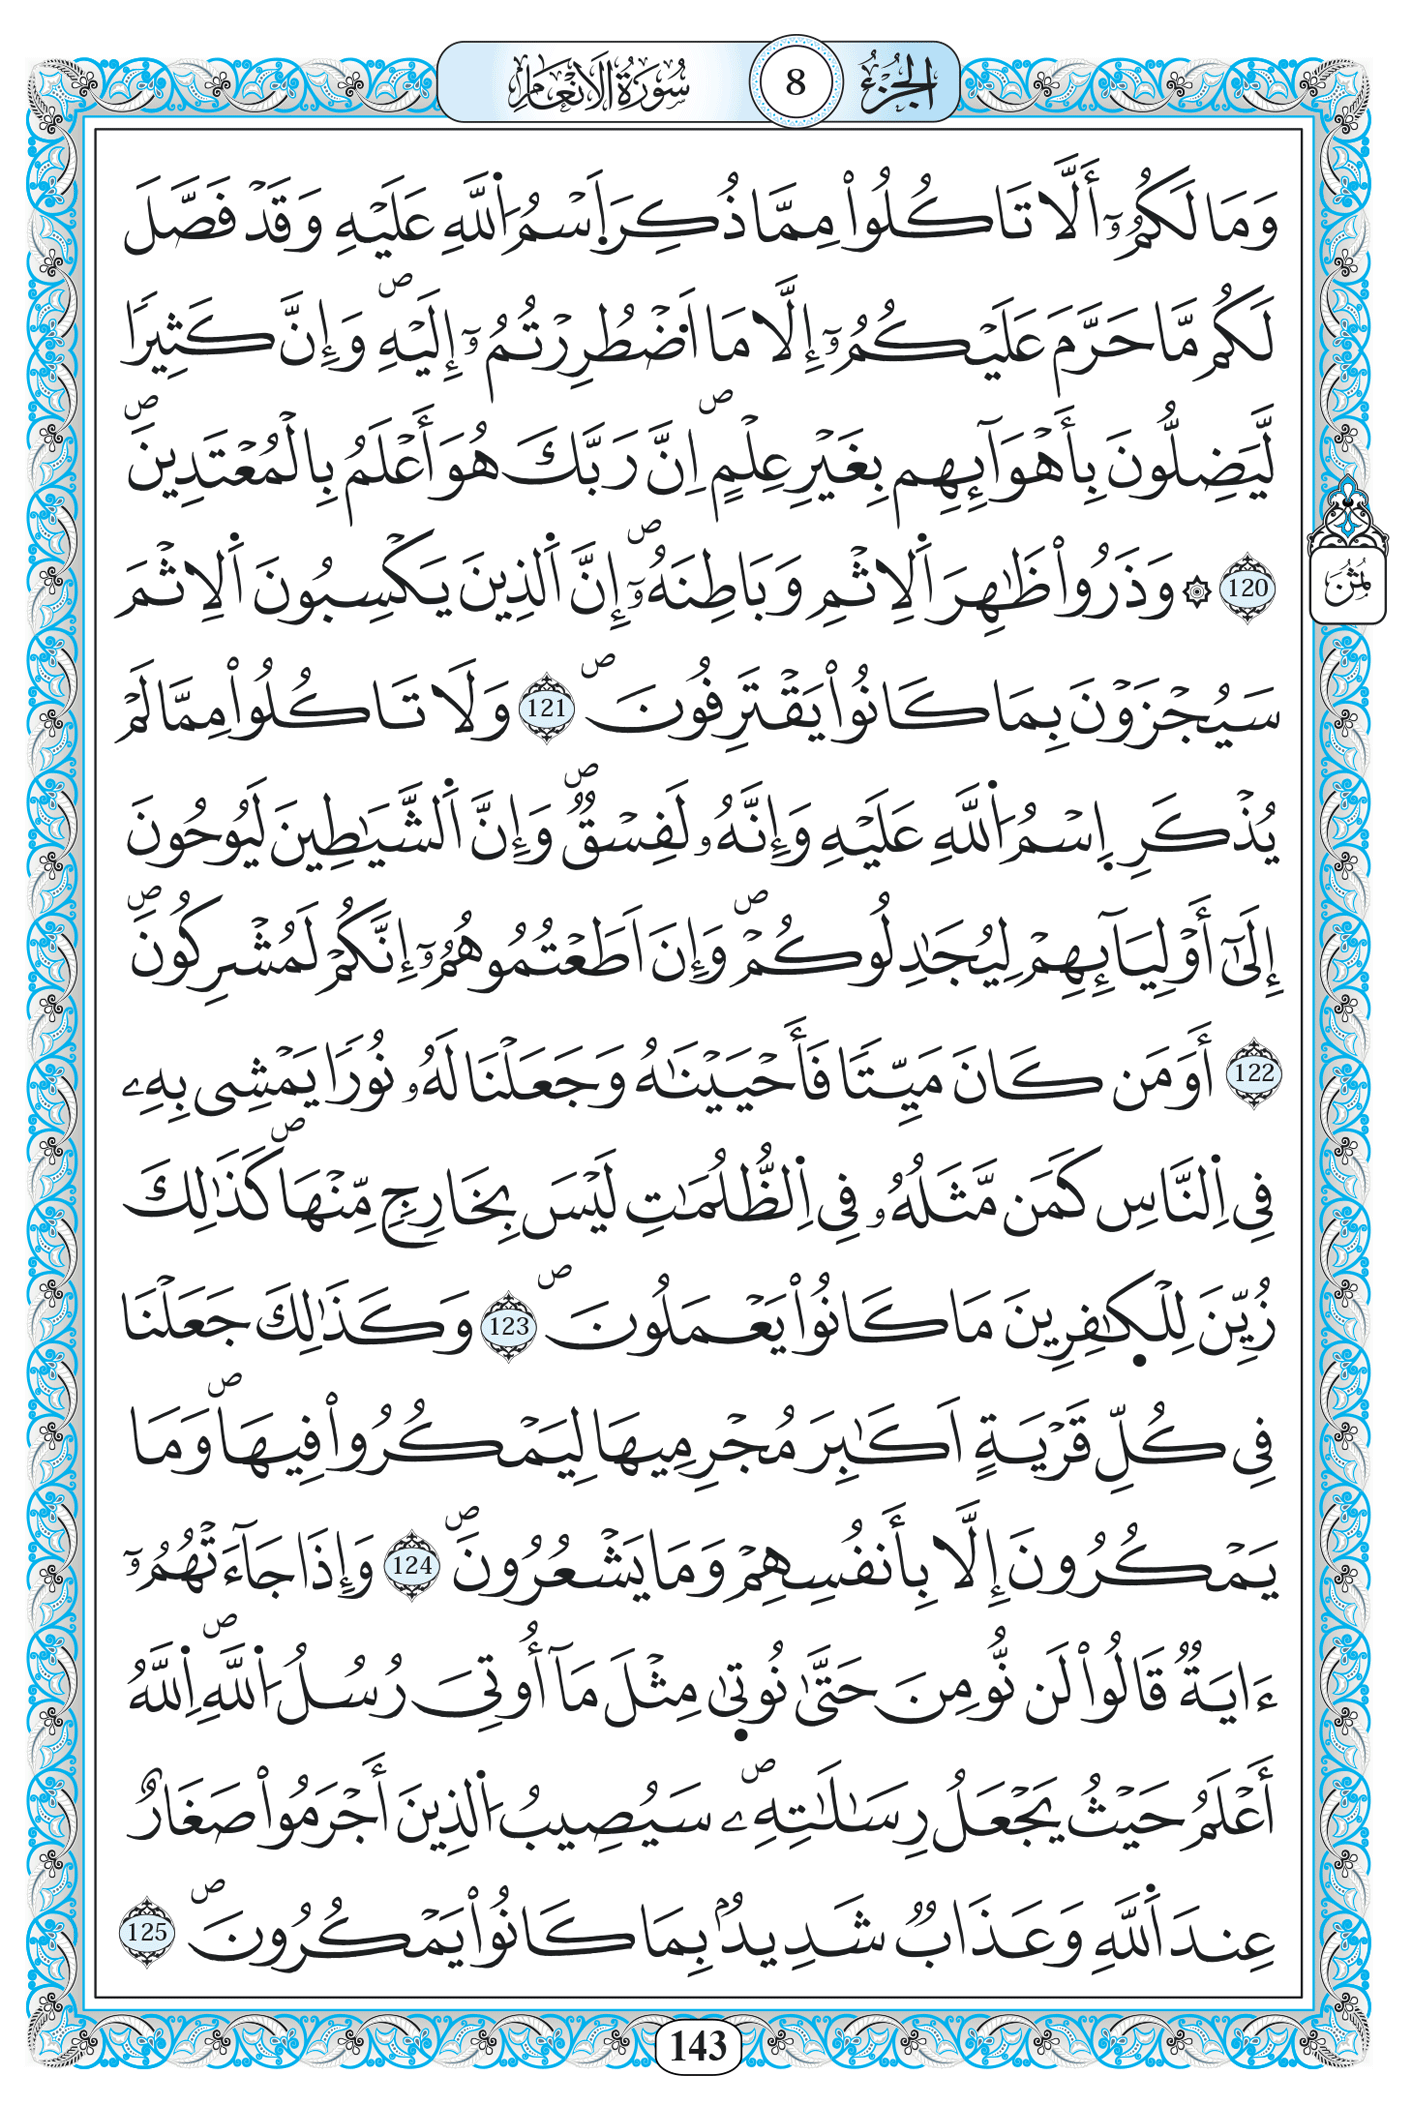 الجزء 8 سورة الانعام
وَمَا لَكُمُۥٓ أَلَّا تَاكُلُوا۟ مِمَّا ذُكِرَ اَ۪سْمُ اُ۬للَّهِ عَلَيْهِ وَقَدْ فَصَّلَ
لَكُم مَّا حَرَّمَ عَلَيْكُمُۥٓ إِلَّا مَا اَ۟ضْطُرِرْتُمُۥٓ إِلَيْهِۖ وَإِنَّ كَثِيرًا
لَّيَضِلُّونَ بِأَهْوَآئِهِم بِغَيْرِ عِلْمٍۖ اِنَّ رَبَّكَ هُوَ أَعْلَمُ بِالْمُعْتَدِينَۖ
120 ۞ وَذَرُوا۟ ظَٰهِرَ اَ۬لِاثْمِ وَبَاطِنَهُۥٓۖ إِنَّ اَ۬لذِينَ يَكْسِبُونَ اَ۬لِاثْمَ
ثمن
سَيُجْزَوْنَ بِمَا كَانُوا۟ يَقْتَرِفُونَۖ 121 وَلَا تَاكُلُوا۟ مِمَّا لَمْ
يُذْكَرِ اِ۪سْمُ اُ۬للَّهِ عَلَيْهِ وَإِنَّهُۥ لَفِسْقٌۖ وَإِنَّ اَ۬لشَّيَٰطِينَ لَيُوحُونَ
إِلَىٰٓ أَوْلِيَآئِهِمْ لِيُجَٰدِلُوكُمْۖ وَإِنَ اَطَعْتُمُوهُمُۥٓ إِنَّكُمْ لَمُشْرِكُونَۖ
122 أَوَمَن كَانَ مَيِّتًا فَأَحْيَيْنَٰهُ وَجَعَلْنَا لَهُۥ نُورًا يَمْشِى بِهِۦ
فِى اِ۬لنَّاسِ كَمَن مَّثَلُهُۥ فِى اِ۬لظُّلُمَٰتِ لَيْسَ بِخَارِجٍ مِّنْهَاۖ كَذَٰلِكَ
زُيِّنَ لِلْكٰ۪فِرِينَ مَا كَانُوا۟ يَعْمَلُونَۖ 123 وَكَذَٰلِكَ جَعَلْنَا
فِى كُلِّ قَرْيَةٍ اَكَٰبِرَ مُجْرِمِيهَا لِيَمْكُرُوا۟ فِيهَاۖ وَمَا
يَمْكُرُونَ إِلَّا بِأَنفُسِهِمْ وَمَا يَشْعُرُونَۖ 124 وَإِذَا جَآءَتْهُمُۥٓ
ءَايَةٌ قَالُوا۟ لَن نُّومِنَ حَتَّىٰ نُوت۪ىٰ مِثْلَ مَآ أُوتِىَ رُسُلُ اُ۬للَّهِۖ اِ۬للَّهُ
أَعْلَمُ حَيْثُ يَجْعَلُ رِسَٰلَٰتِهِۦۖ سَيُصِيبُ اُ۬لذِينَ أَجْرَمُوا۟ صَغَارٌ
عِندَ اَ۬للَّهِ وَعَذَابٌ شَدِيدٌۢ بِمَا كَانُوا۟ يَمْكُرُونَۖ 125
143